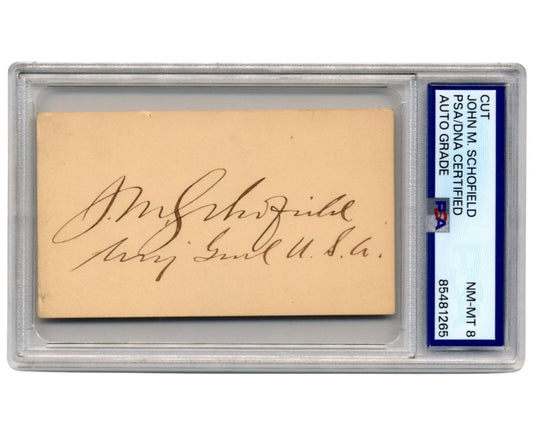 J.M. Schofield
Maj Genl U.S.A.
CUT
JOHN M. SCHOFIELD
PSA/DNA CERTIFIED
AUTO GRADE
PSA
NM-MT 8
85481265